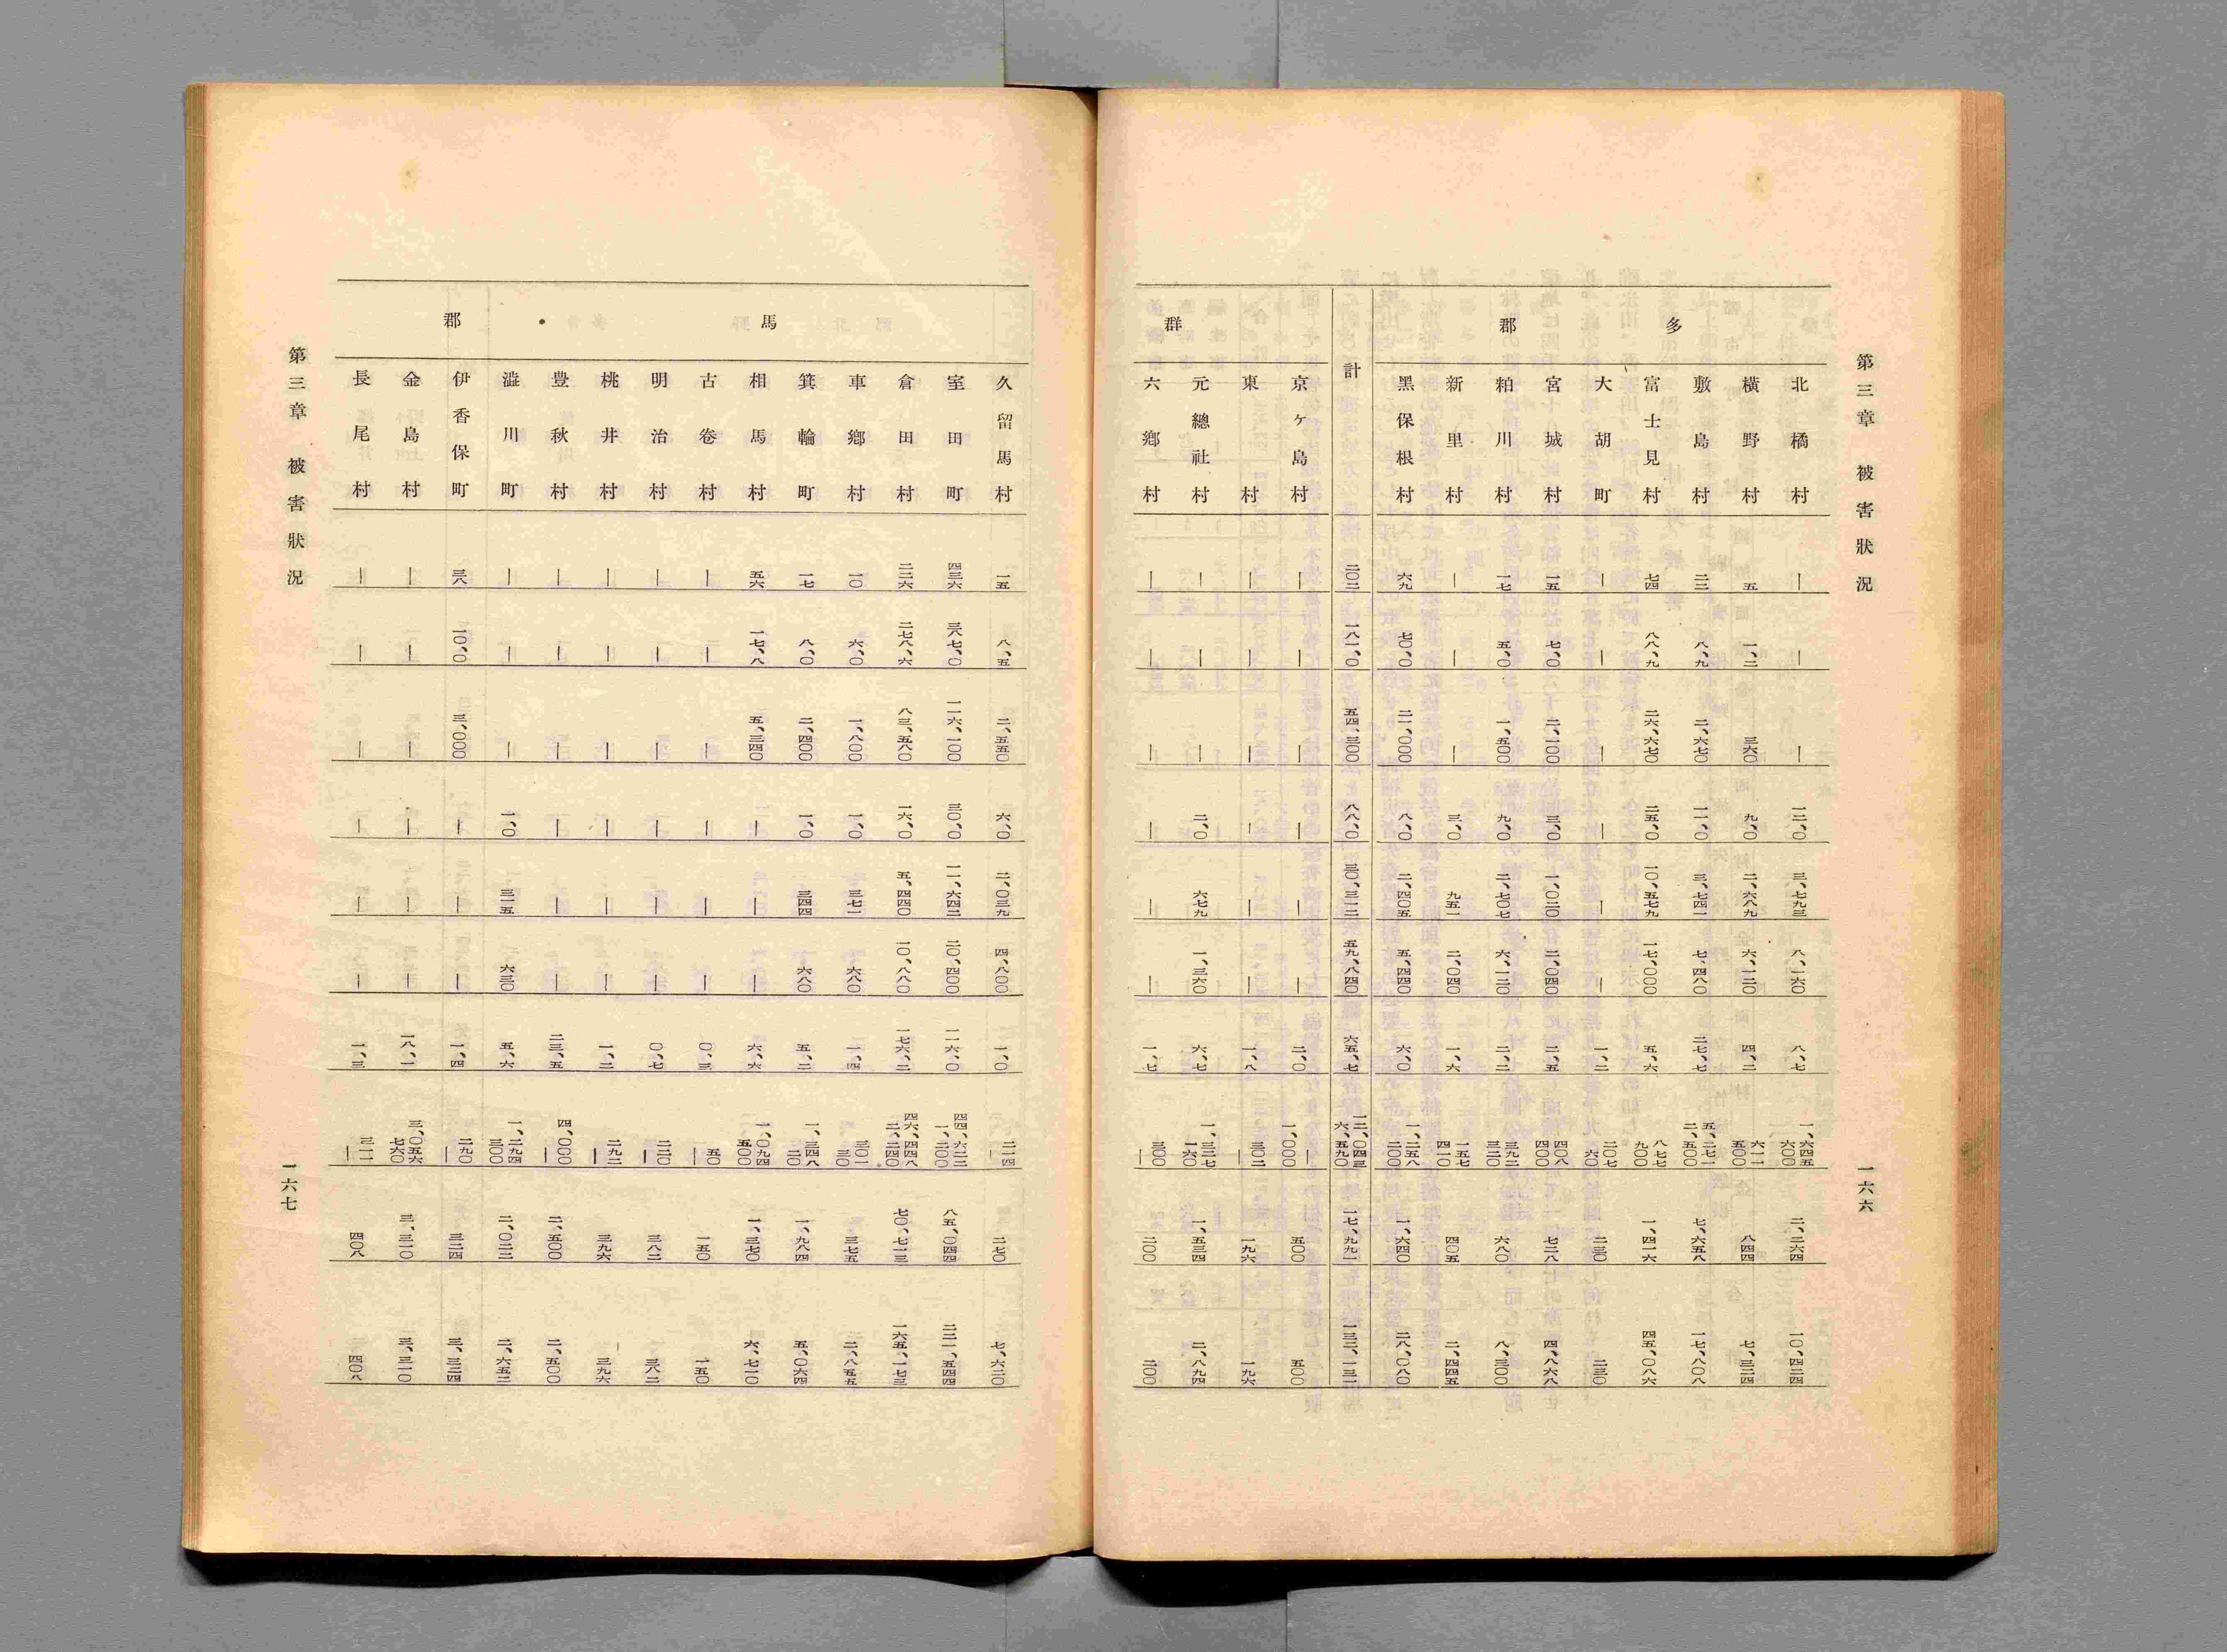 第三章 被害狀況 一六六
多郡
北橘村 — — — 一二、〇 三、七九三 八、一六〇 八、七 一、六四五 六〇〇 二、二六四 一〇、四二四
横野村 五 一、二 三六〇 九、〇 二、六八九 六、一二〇 四、二 六一一 五〇〇 八四四 七、三二四
敷島村 二三 八、九 二、六七〇 一一、〇 三、七四一 七、四八〇 二七、七 五、二七一 二、五〇〇 七、六五八 一七、八〇八
富士見村 七四 八八、九 二六、六七〇 二五、〇 一〇、五七九 一七、〇〇〇 五、六 八七七 九〇〇 一、四一六 四五、〇八六
大胡町 — — — — — — 一、二 二〇七 六〇 二三〇 二三〇
宮城村 一五 七、〇 二、一〇〇 三、〇 一、〇二〇 二、〇四〇 二、五 四〇八 四〇〇 七二八 四、八六八
粕川村 一七 五、〇 一、五〇〇 九、〇 二、七〇七 六、一二〇 二、二 三九二 三二〇 六八〇 八、三〇〇
新里村 — — — 三、〇 九五一 二、〇四〇 一、六 一五七 四一〇 四〇五 二、四四五
黑保根村 六九 七〇、〇 二一、〇〇〇 八、〇 二、四〇五 五、四四〇 六、〇 一、二五八 二〇〇 一、六四〇 二八、〇八〇
計 二〇二 一八一、〇 五四、三〇〇 八八、〇 三〇、三一二 五九、八四〇 六五、七 一二、〇四三 六、五九〇 一七、九九一 一三二、一三一
群
京ヶ島村 — — — — — — 二、〇 — 一、〇〇〇 五〇〇 五〇〇
東村 — — — — — — 一、八 三〇二 — 一九六 一九六
元總社村 — — — 二、〇 六七九 一、三六〇 六、七 一、三三七 一六〇 一、五三四 二、八九四
六鄕村 — — — — — — 一、七 三〇〇 — 二〇〇 二〇〇
馬郡
久留馬村 一五 八、五 二、五五〇 六、〇 二、〇三九 四、八〇〇 一、〇 二一四 — 二七〇 七、六二〇
室田町 四三六 三八七、〇 一一六、一〇〇 三〇、〇 一一、六四二 二〇、四〇〇 一一六、〇 四四、六二二 一、二〇〇 八五、〇四四 二二一、五四四
倉田村 二三六 二七八、六 八三、五八〇 一六、〇 五、四四〇 一〇、八八〇 一七六、二 四六、四四八 二、二四〇 七〇、七一三 一六五、一七三
車鄕村 一〇 六、〇 一、八〇〇 一、〇 三七二 六八〇 一、四 三〇一 三〇 三七五 二、八五五
箕輪町 一七 八、〇 二、四〇〇 一、〇 三四四 六八〇 五、二 一、三四八 二〇 一、九八四 五、〇六四
相馬村 五六 一七、八 五、三四〇 — — — 六、六 一、〇九四 五〇〇 一、三七〇 六、七一〇
古卷村 — — — — — — 〇、三 五〇 — 一五〇 一五〇
明治村 — — — — — — 〇、七 二二〇 — 三八二 三八二
桃井村 — — — — — — 一、二 二九二 — 三九六 三九六
豊秋村 — — — — — — 二三、五 四、〇〇〇 — 二、五〇〇 二、五〇〇
澁川町 — — — 一、〇 三一五 六三〇 五、六 一、二九四 三〇〇 二、〇二二 二、六五二
伊香保町 三八 一〇、〇 三、〇〇〇 — — — 一、四 二九〇 — 三二四 三、三二四
金島村 — — — — — — 一八、一 三、〇五六 七六〇 三、三一〇 三、三一〇
長尾村 — — — — — — 一、三 三一一 — 四〇八 四〇八
第三章 被害狀況 一六七